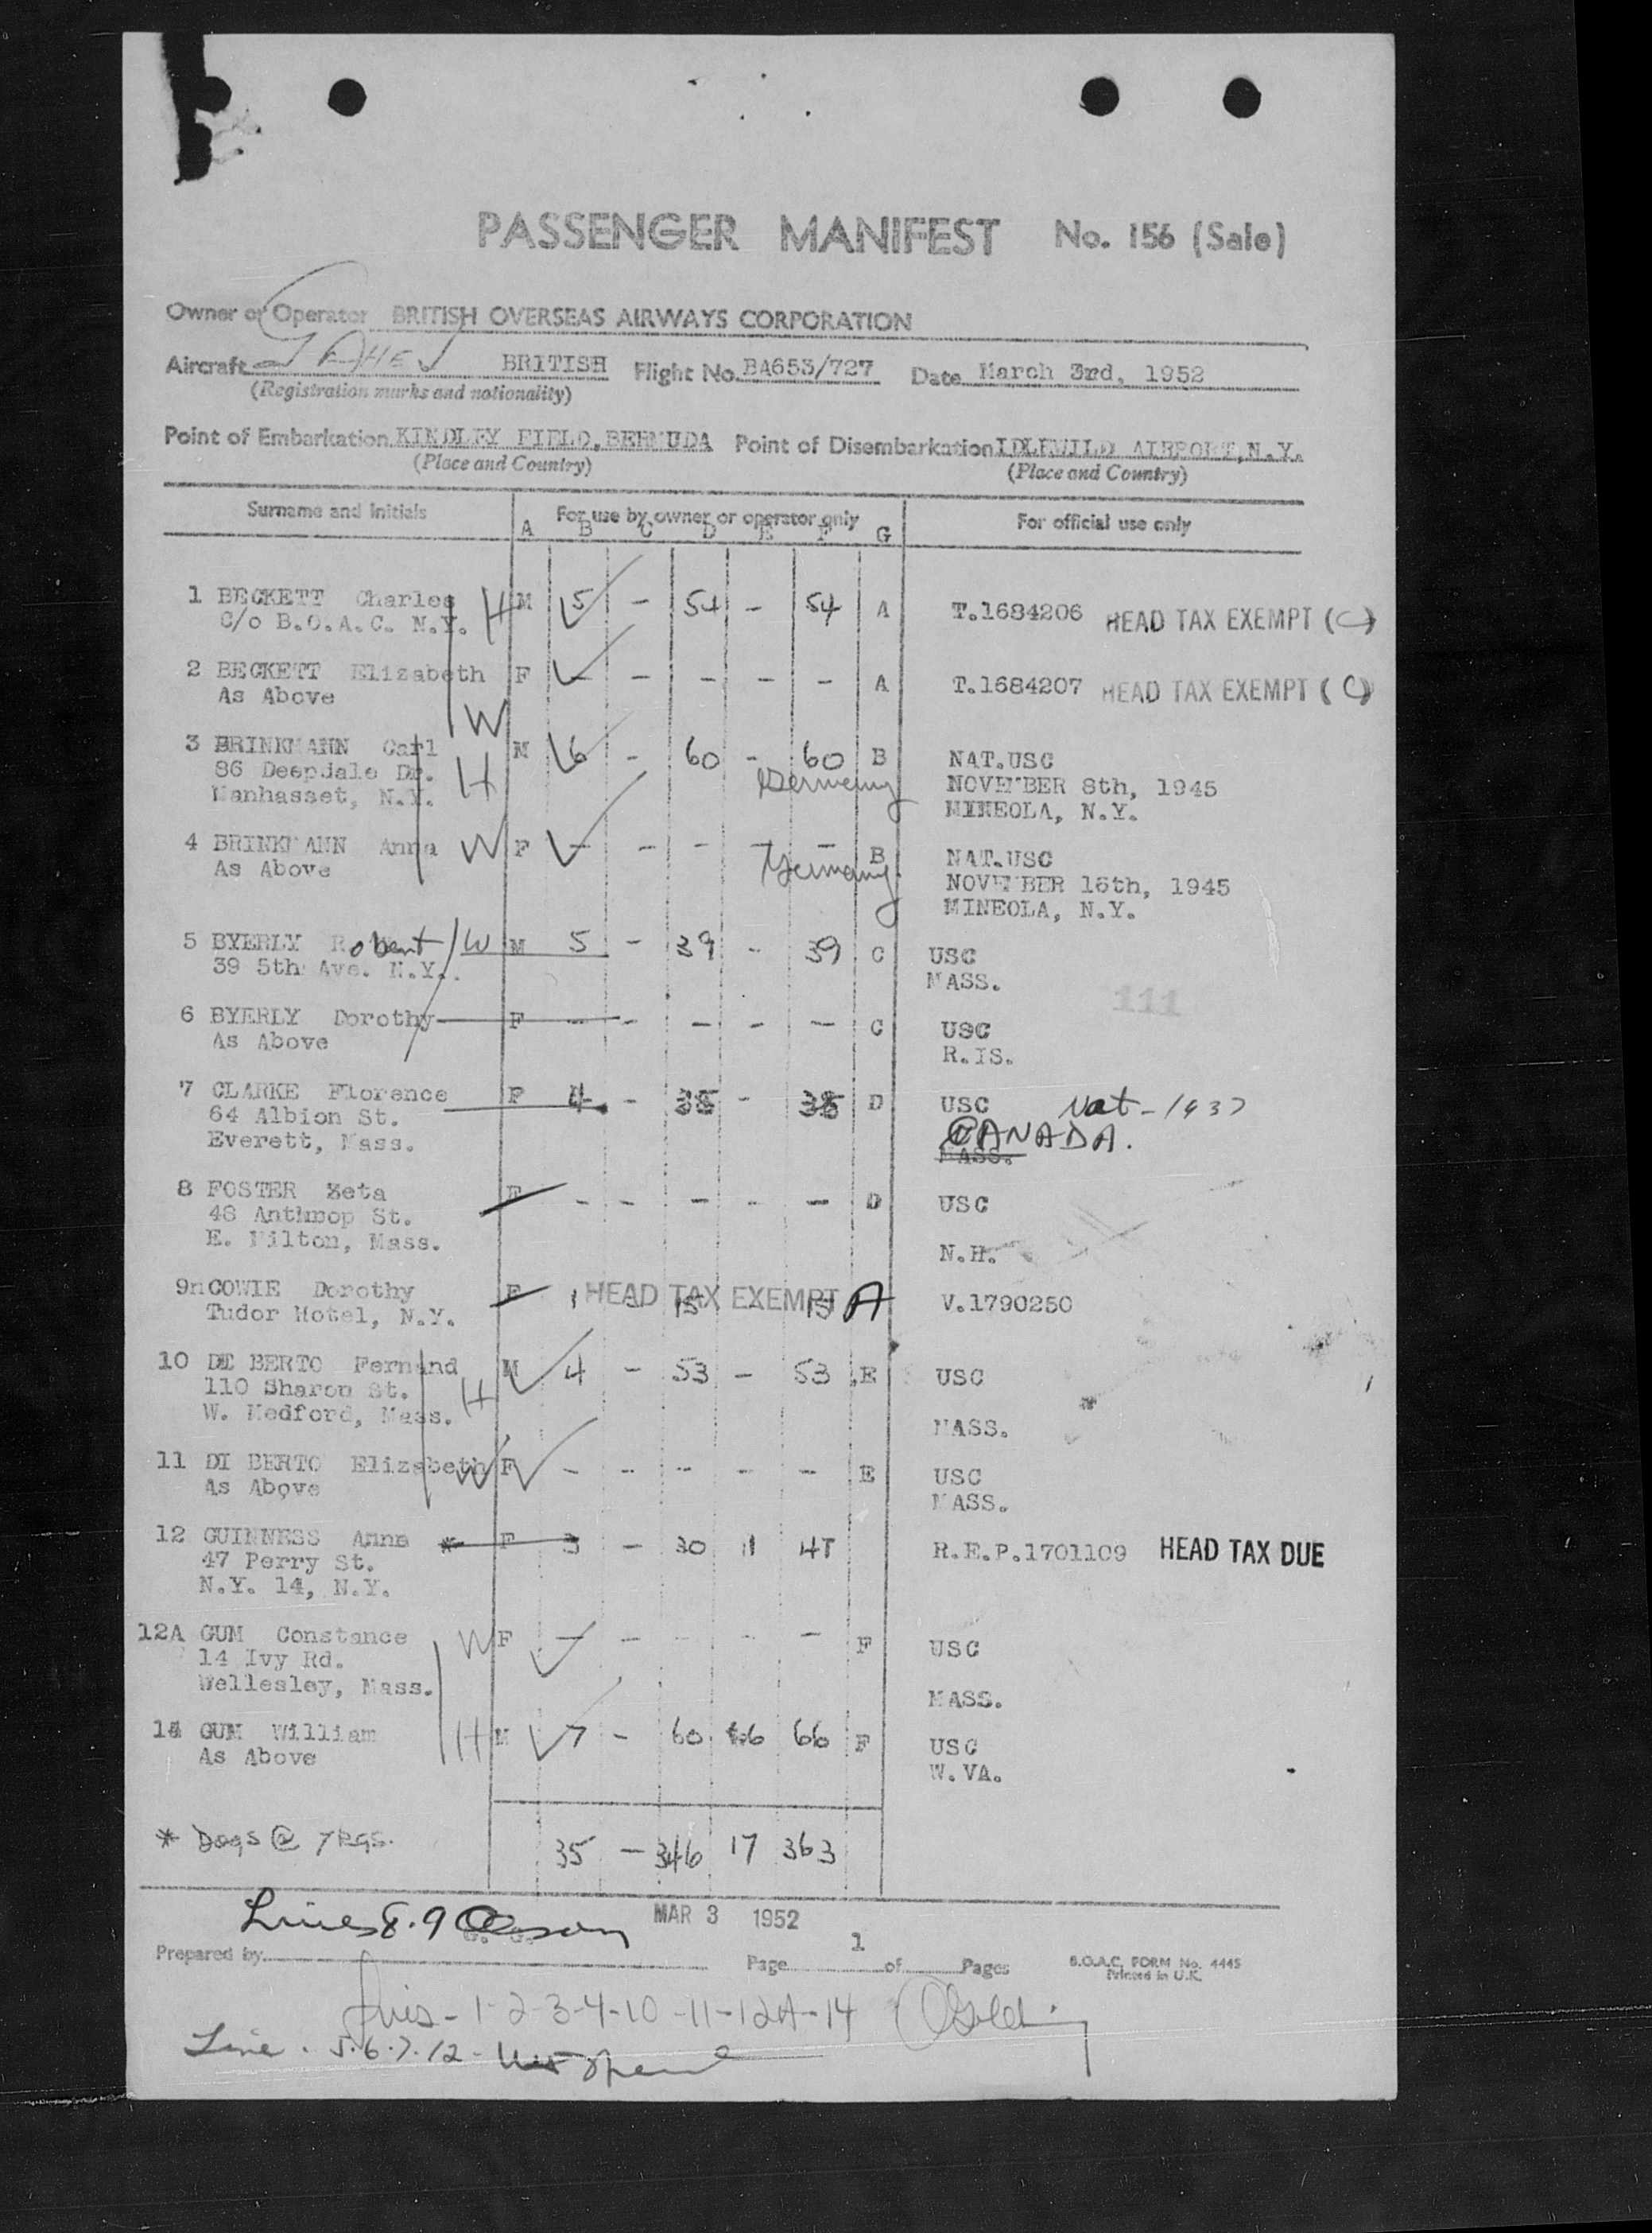 PASSENGER MANIFEST No. 156 (Sale)
Owner or Operator BRITISH OVERSEAS AIRWAYS CORPORATION
Aircraft BRITISH Flight No. BA653/727 Date March 3rd, 1952
(Registration marks and nationality)
Point of Embarkation KINDLEY FIELD, BERMUDA Point of Disembarkation IDLEWILD AIRPORT, N.Y.
(Place and Country) (Place and Country)
Surname and Initials For use by owner or operator only For official use only
A B C D E F G
1 BECKETT Charles H M 5 - 54 - 54 A T.1684206 HEAD TAX EXEMPT (C)
C/o B.O.A.C. N.Y.
2 BECKETT Elizabeth F - - - - - A T.1684207 HEAD TAX EXEMPT (C)
As Above W
3 BRINKMANN Carl M 6 - 60 - 60 B NAT.USC
86 Deepdale Dr. H Germany NOVEMBER 8th, 1945
Manhasset, N.Y. MINEOLA, N.Y.
4 BRINKMANN Anna W F - - - - - B NAT.USC
As Above Germany NOVEMBER 16th, 1945
MINEOLA, N.Y.
5 BYERLY Robert W M 5 - 39 - 39 C USC
39 5th Ave. N.Y. MASS.
111
6 BYERLY Dorothy F - - - - - C USC
As Above R.IS.
7 CLARKE Florence F 4 - 35 - 35 D USC Nat - 1937
64 Albion St. CANADA.
Everett, Mass. MASS.
8 FOSTER Zeta F - - - - - D USC
48 Anthrop St.
E. Milton, Mass. N.H.
9n COWIE Dorothy F 1 HEAD TAX EXEMPT 15 15 A V.1790250
Tudor Hotel, N.Y.
10 DI BERTO Fernand M 4 - 53 - 53 E USC
110 Sharon St. H
W. Medford, Mass. MASS.
11 DI BERTO Elizabeth W F - - - - - E USC
As Above MASS.
12 GUINNESS Anne * F 3 - 30 47 R.E.P.1701109 HEAD TAX DUE
47 Perry St.
N.Y. 14, N.Y.
12A GUM Constance W F - - - - - F USC
14 Ivy Rd.
Wellesley, Mass. MASS.
14 GUM William H M 7 - 60 6 66 F USC
As Above W.VA.
* Dogs @ 7Kgs. 35 - 346 17 363
Lines 8.9 MAR 3 1952
Prepared by Page 1 of Pages B.O.A.C. FORM No. 4445
Printed in U.K.
Lines - 1-2-3-4-10-11-12A-14
Line . 5.6.7.12 -